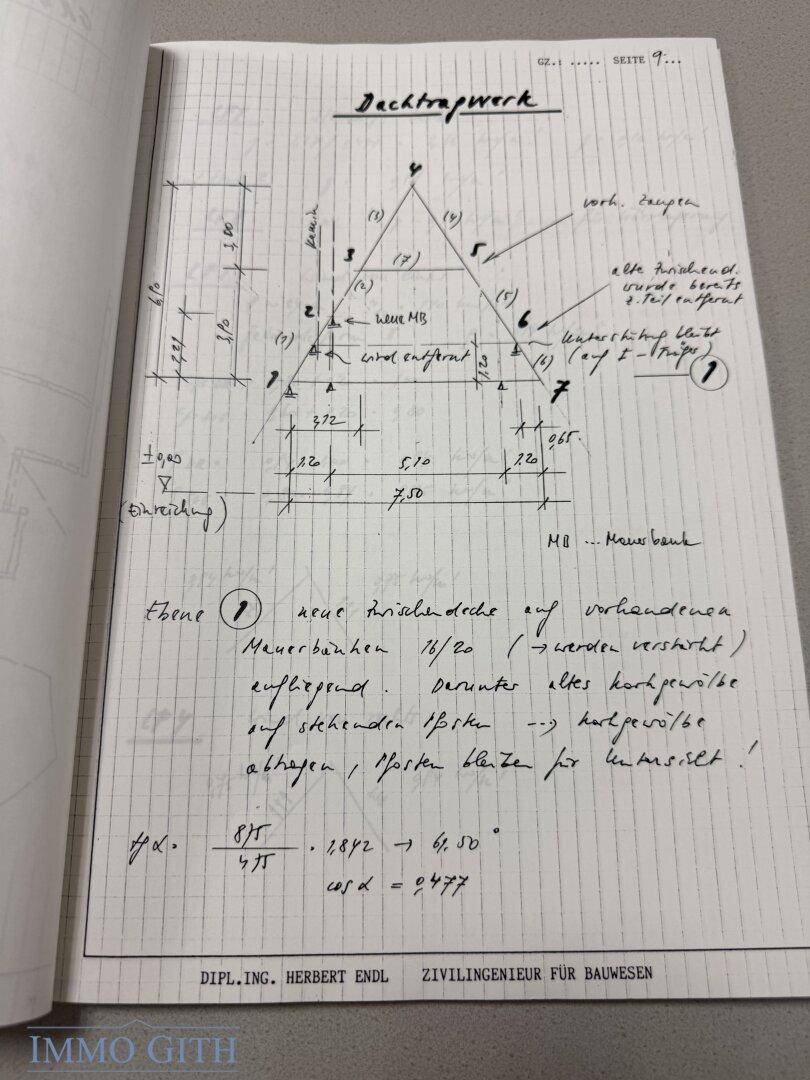 GZ.: ..... SEITE 9...
Dachtragwerk
4
(3)
(4)
vorh. Zangen
Kamin
3
(7)
5
(2)
(5)
alte Zwischend.
wurde bereits
z. Teil entfernt
2
neue MB
6
(1)
wird entfernt
Unterstützung bleibt
(auf I-Träger)
(6)
1
1
7
1,20
3,00
6,90
2,21
3,90
2,12
0,65
±0,00
1.20
5,10
1.20
(Einreichung)
7,50
MB ... Mauerbank
Ebene 1 neue Zwischendecke auf vorhandenen
Mauerbänken 16/20 (→ werden verstärkt)
aufliegend. Darunter altes Korbgewölbe
auf stehenden Pfosten --→ Korbgewölbe
abtragen, Pfosten bleiben für Untersicht!
tg α = 875
475
= 1,842 → 61.50°
cos α = 0,477
DIPL.ING. HERBERT ENDL ZIVILINGENIEUR FÜR BAUWESEN
IMMO GITH